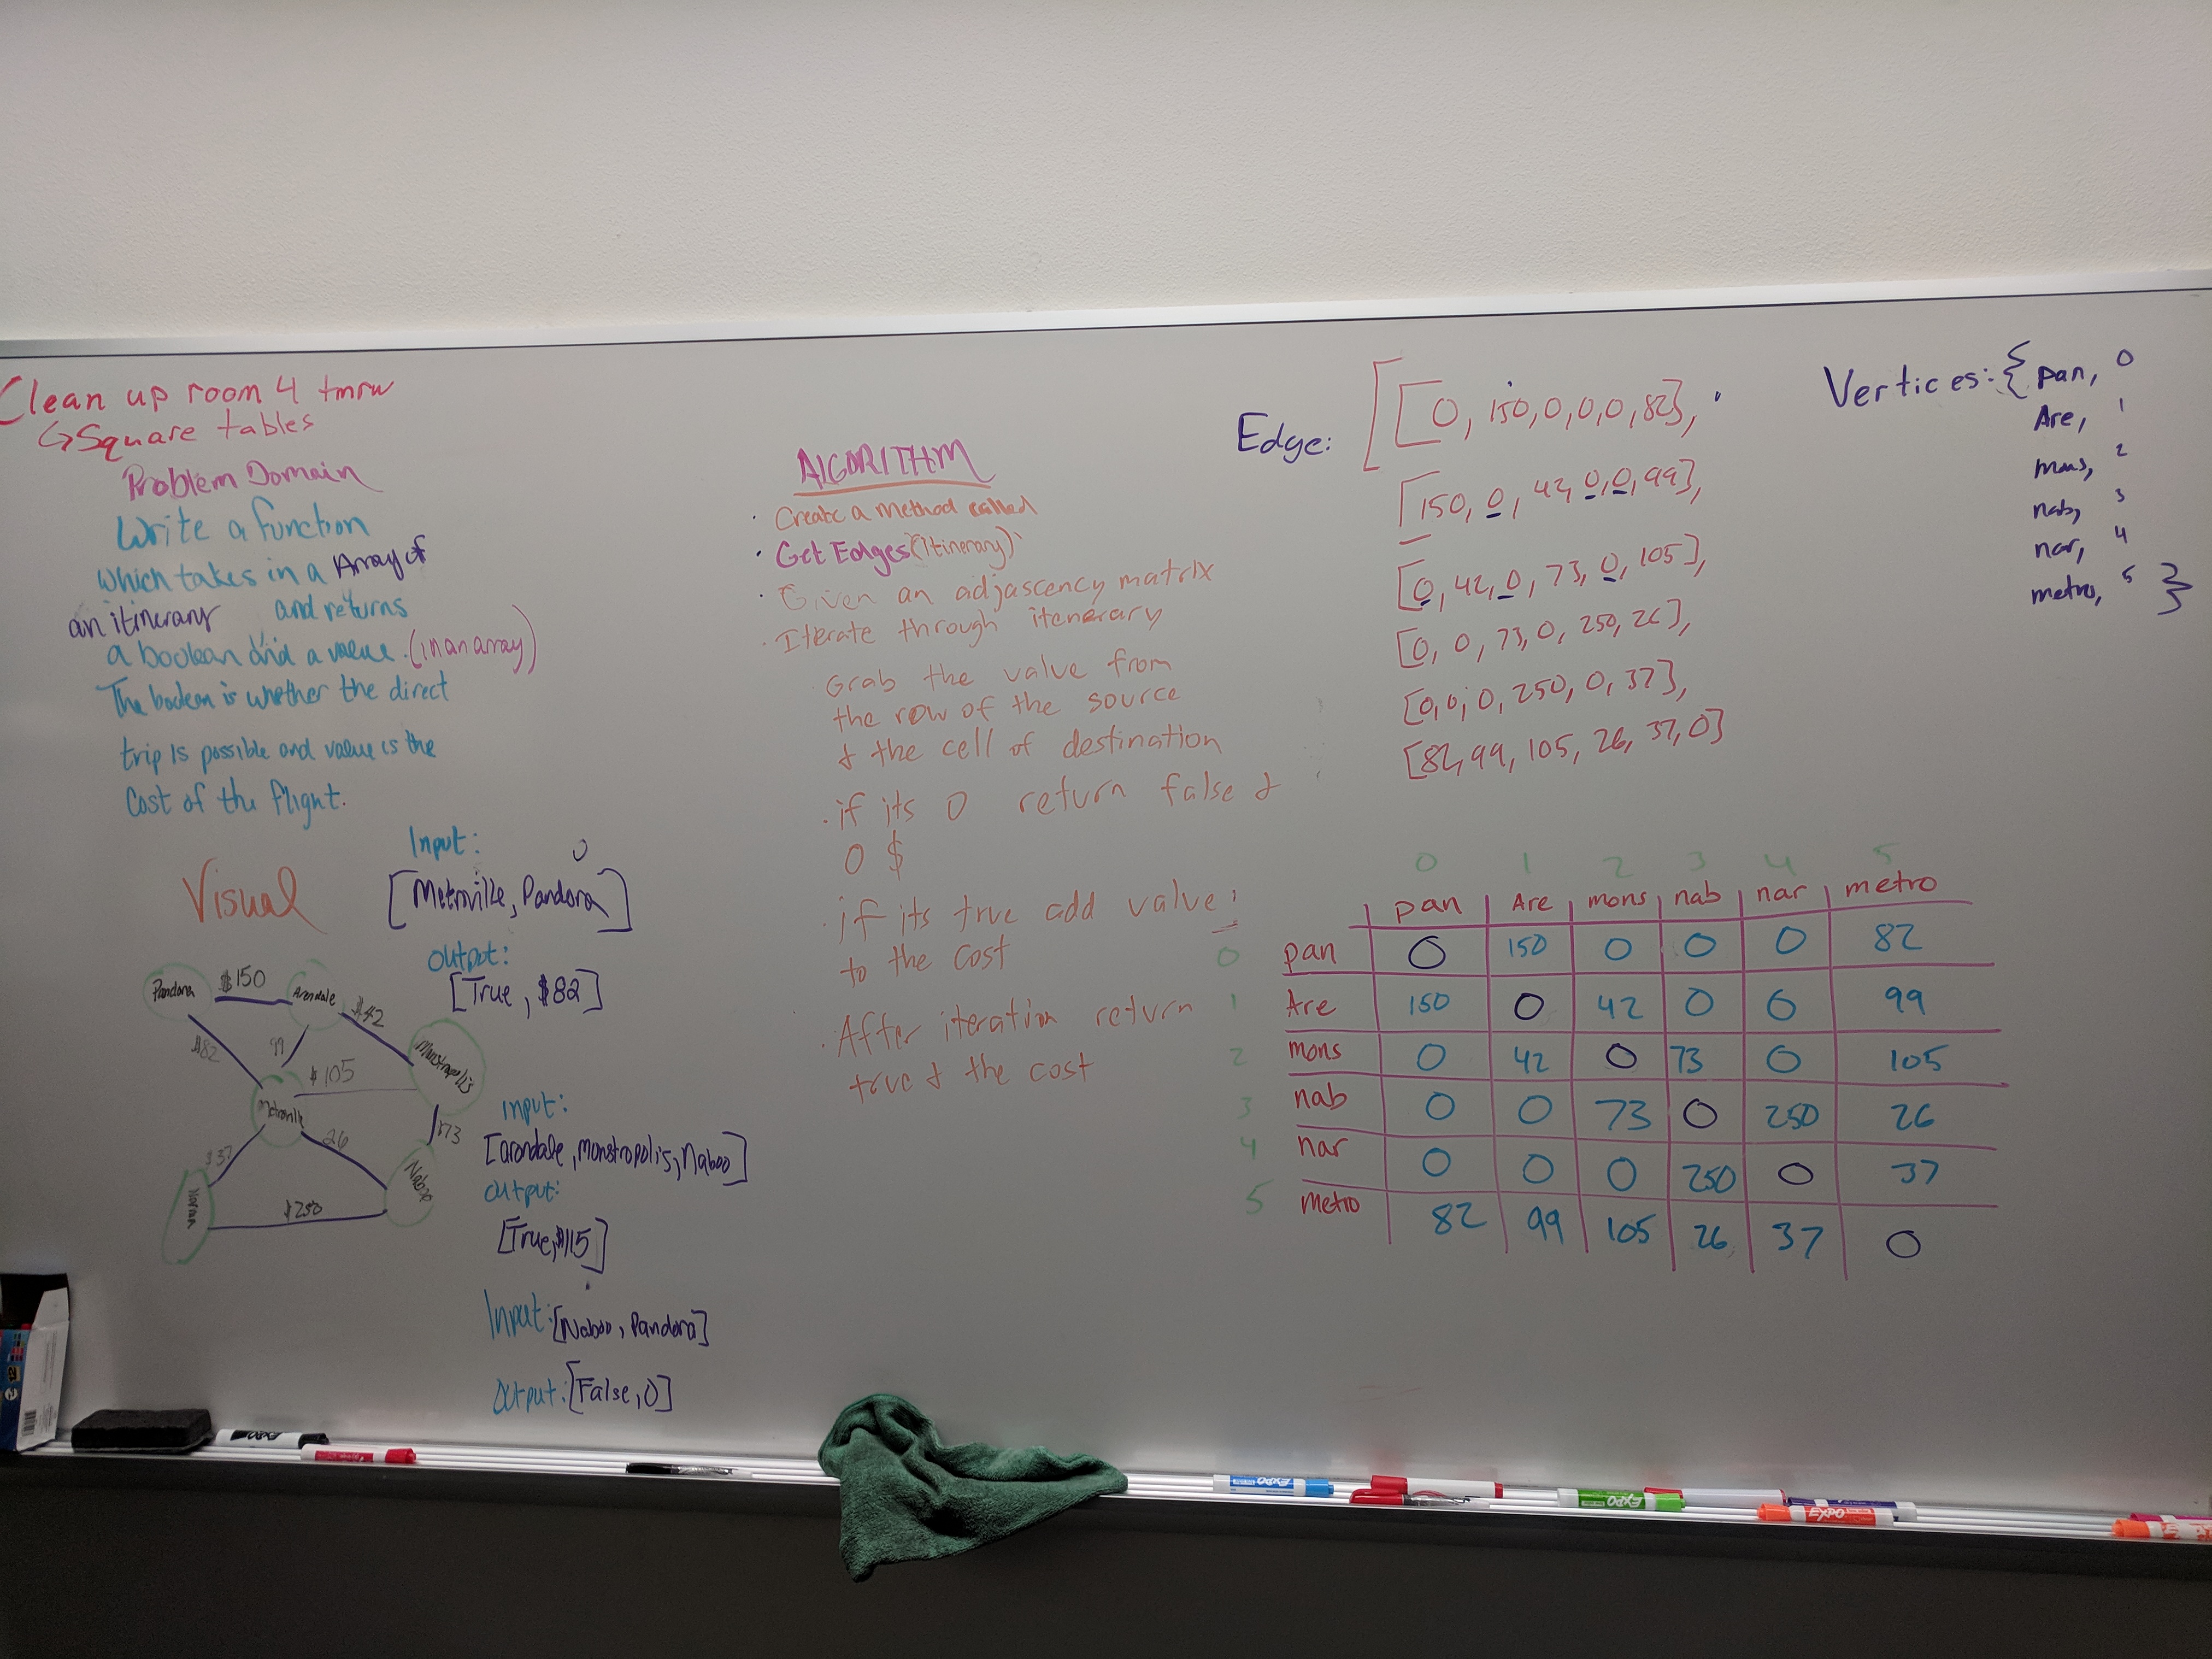 Clean up room 4 tmrw
↳ Square tables
Problem Domain
Write a function
which takes in a Array of
an itinerary and returns
a boolean and a value. (in an array)
The boolean is whether the direct
trip is possible and value is the
Cost of the flight.
Visual
Pandora
$150
Arendale
$42
Monstropolis
$82
99
$105
Metroville
$73
$37
26
Naboo
$250
Input:
[Metroville, Pandora]
Output:
[True, $82]
Input:
[arondale, monstropolis, Naboo]
Output:
[True, $115]
Input: [Naboo, Pandora]
Output: [False, 0]
ALGORITHM
· Create a method called
· Get Edges (itinerary)
· Given an adjascency matrix
· Iterate through itenerary
· Grab the value from
the row of the source
& the cell of destination
· if its 0 return false &
0 $
· if its true add value
to the cost
· After iteration return
true & the cost
Edge: [[0, 150, 0, 0, 0, 82],
[150, 0, 42, 0, 0, 99],
[0, 42, 0, 73, 0, 105],
[0, 0, 73, 0, 250, 26],
[0, 0, 0, 250, 0, 37],
[82, 99, 105, 26, 37, 0]
Vertices: { pan, 0
Are, 1
mons, 2
nab, 3
nar, 4
metro, 5 }
0 1 2 3 4 5
pan Are mons nab nar metro
0 pan 0 150 0 0 0 82
1 Are 150 0 42 0 0 99
2 mons 0 42 0 73 0 105
3 nab 0 0 73 0 250 26
4 nar 0 0 0 250 0 37
5 metro 82 99 105 26 37 0
EXPO
EXPO
EXPO
EXPO